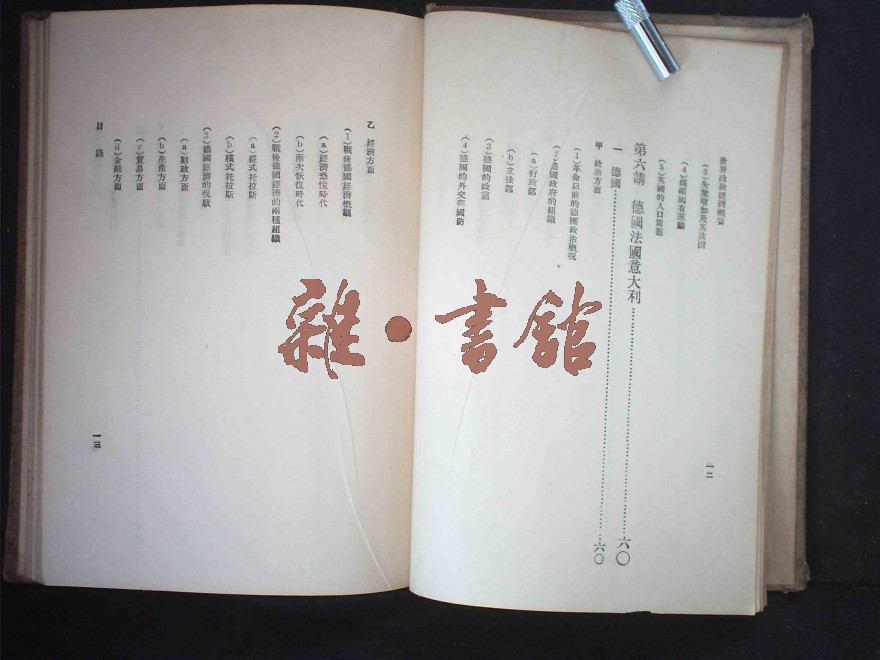 世界政治經濟概要
(3)失業增加及其救濟
(4)煤礦國有運動
(5)英國的人口問題
第六講　德國法國意大利……六〇
一　德國……六〇
甲　政治方面
(1)革命以前的德國政治概況
(2)德國政府的組織
(a)行政部
(b)立法部
(3)德國的政黨
(4)德國的外交與國防
一二
乙　經濟方面
(1)戰後德國經濟概觀
(a)經濟恐慌時代
(b)漸次恢復時代
(2)戰後德國經濟的兩種組織
(a)縱式托拉斯
(b)橫式托拉斯
(3)德國經濟的現狀
(a)財政方面
(b)生產方面
(c)貿易方面
(d)金融方面
目錄
一三
雜·書館